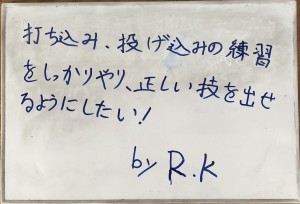 打ち込み、投げ込みの練習
をしっかりやり、正しい技を出せ
るようにしたい!
by R.K